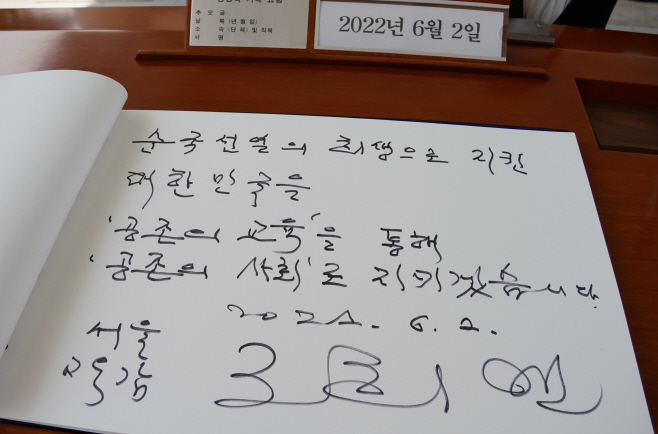 추 모 글
날 짜 (년 월 일)
소 속 (단 체) 및 직책
서 명
2022년 6월 2일
순국선열의 희생으로 지킨
대한민국을
'공존의 교육'을 통해
'공존의 사회'로 지키겠습니다.
2022. 6. 2.
서울
교육감
조희연